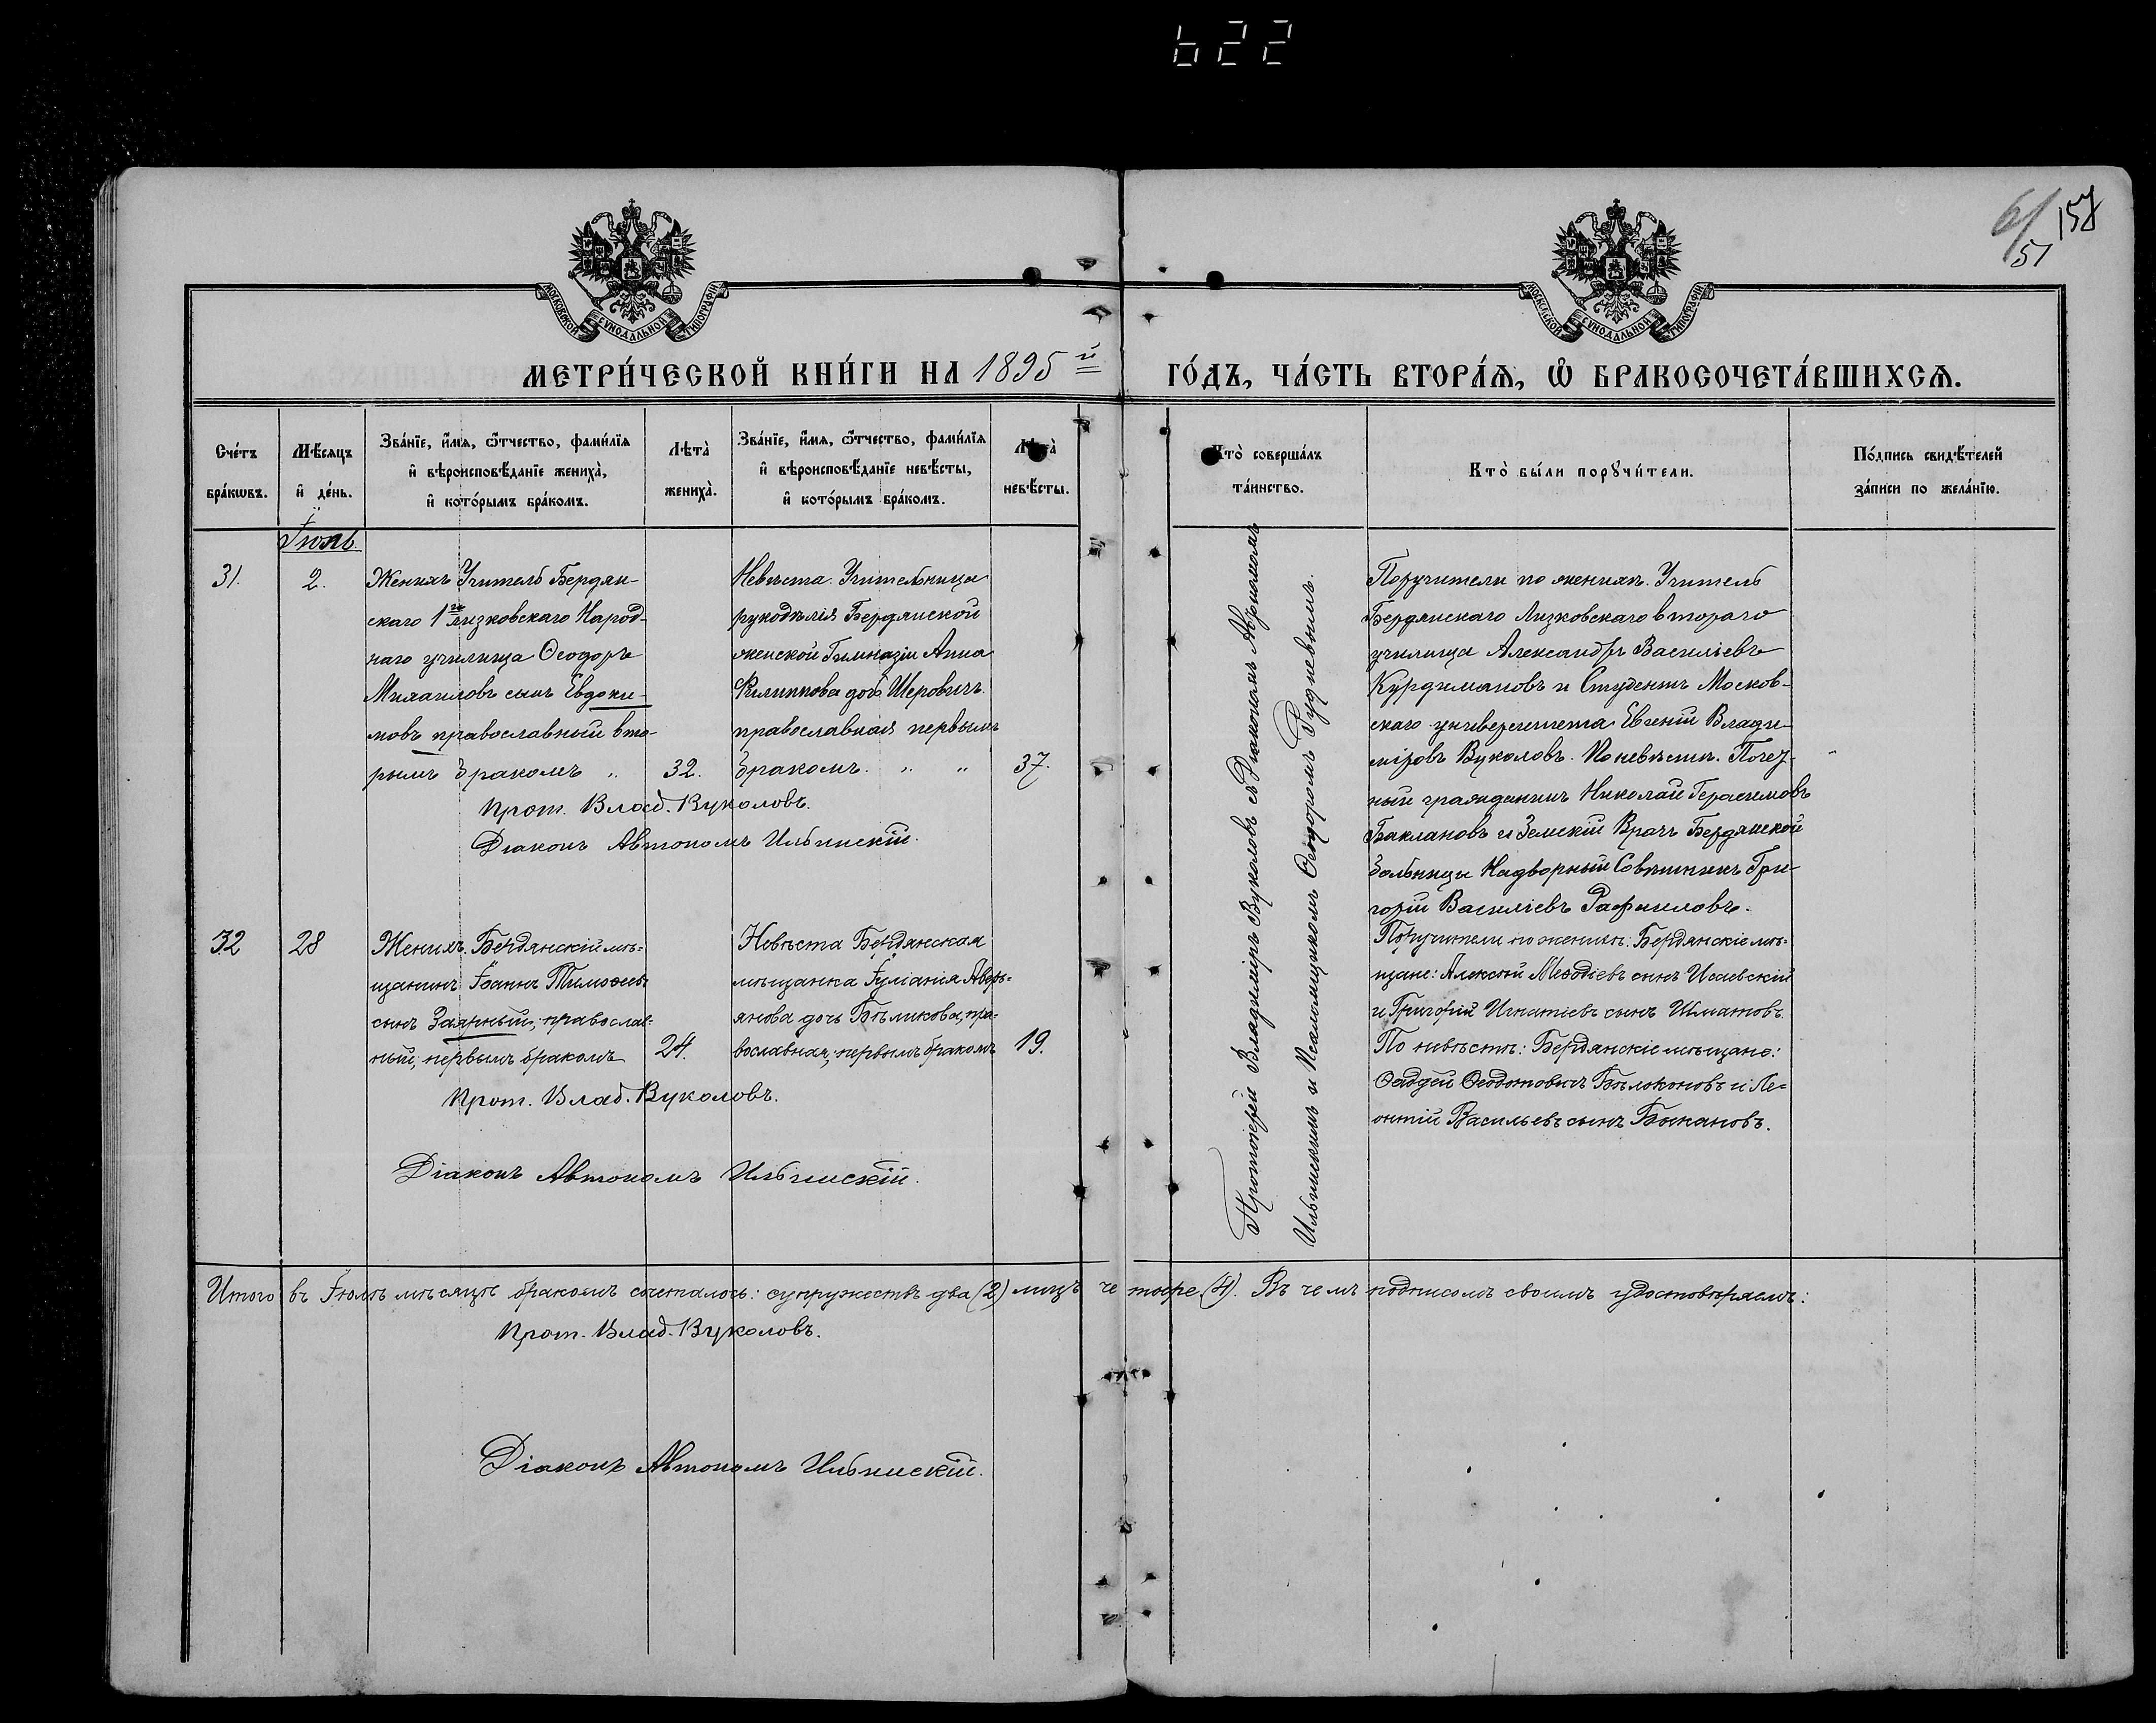 622
6/51
157
МОСКОВСКОЙ СѴНОДАЛЬНОЙ ТИПОГРАФІИ
МОСКОВСКОЙ СѴНОДАЛЬНОЙ ТИПОГРАФІИ
МЕТРИ́ЧЕСКОЙ КНИ́ГИ НА 1895й ГО́ДЪ, ЧА́СТЬ ВТОРА́Ѧ, Ѡ҆ БРАКОСОЧЕТА́ВШИХСѦ.
Сче́тъ бра́кѡвъ.
Мѣ́сяцъ и҆ де́нь.
Зва́нїе, и҆́мѧ, ѻ҆́тчество, фами́лїѧ
и҆ вѣроисповѣ́данїе жениха̀,
и҆ кото́рымъ бра́комъ.
Лѣта̀ жениха̀.
Зва́нїе, и҆́мѧ, ѻ҆́тчество, фами́лїѧ
и҆ вѣроисповѣ́данїе невѣ́сты,
и҆ кото́рымъ бра́комъ.
Лѣта̀ невѣ́сты.
Кто̀ соверша́лъ та́инство.
Кто̀ бы́ли порꙋчи́тели.
По́дпись свидѣ́телей за́писи по жела́нїю.
Іюль.
31.
2.
Женихъ Учитель Бердян-
скаго 1го Лизковскаго Народ-
наго училища Ѳеодоръ
Михаиловъ сынъ Евдоки-
мовъ православный вто-
рымъ бракомъ „
32.
Невѣста. Учительница
рукодѣлія Бердянской
женской Гимназіи Анна
Филиппова дочь Шеровичъ.
православная первымъ
бракомъ. „ „
37.
Прот. Влад. Вуколовъ.
Діаконъ Автономъ Ильинскій.
Протоіерей Владиміръ Вуколовъ съ Діакономъ Автономомъ
Ильинскимъ и Псаломщикомъ Ѳеодоромъ Рудневымъ.
Поручители по женихѣ. Учитель
Бердянскаго Лизковскаго втораго
училища Александръ Васильевъ
Курдимановъ и Студентъ Москов-
скаго университета Евгеній Влади-
міровъ Вуколовъ. По невѣстѣ. Почет-
ный гражданинъ Николай Герасимовъ
Баклановъ и Земскій Врачъ Бердянской
больницы Надворный Совѣтникъ Гри-
горій Васильевъ Рафаиловъ.
32
28
Женихъ. Бердянскій мѣ-
щанинъ Іоаннъ Тимоѳеевъ
сынъ Заярный, православ-
ный, первымъ бракомъ
24.
Невѣста Бердянская
мѣщанка Іуліанія Аверь-
янова дочь Бѣликова, пра-
вославная, первымъ бракомъ
19.
Прот. Влад. Вуколовъ.
Діаконъ Автономъ Ильинскій.
Поручители по женихѣ: Бердянскіе мѣ-
щане: Алексѣй Меѳодіевъ сынъ Исаевскій
и Григорій Игнатіевъ сынъ Шматовъ.
По невѣстѣ: Бердянскіе мѣщане:
Ѳаддей Ѳеодотовичъ Бѣлоконовъ и Ле-
онтій Васильевъ сынъ Божановъ.
Итого въ Іюлѣ мѣсяцѣ бракомъ сочеталось: супружествъ два (2) лицъ четыре (4). Въ чемъ подписомъ своимъ удостовѣряемъ:
Прот. Влад. Вуколовъ.
Діаконъ Автономъ Ильинскій.